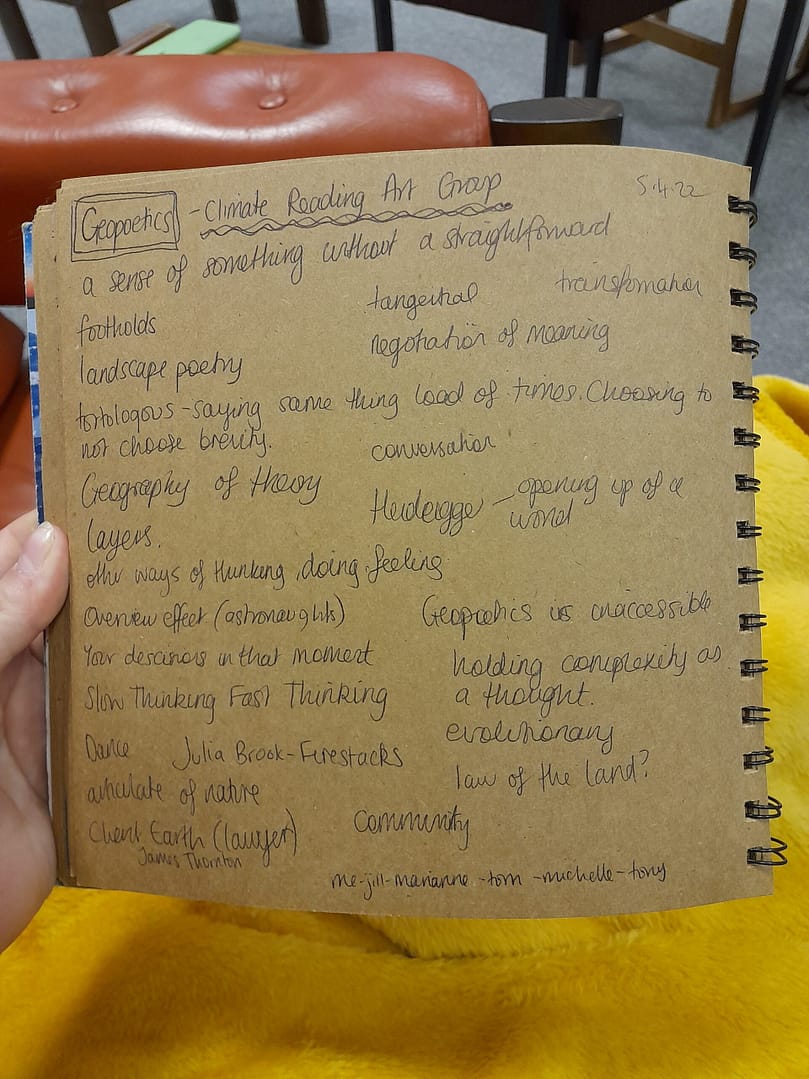 Geopoetics - Climate Reading Art Group 5.4.22
a sense of something without a straightforward
footholds tangential transformation
landscape poetry negotiation of meaning
tortologous - saying same thing load of times. Choosing to
not choose brevity.
conversation
Geography of theory
Heidegge - opening up of a
word
layers.
other ways of thinking, doing, feeling
Overview effect (astronaughts) Geopoetics is inaccessible
Your descisions in that moment holding complexity as
Slow Thinking Fast Thinking a thought.
evolutionary
Dance Julia Brook - Firestacks
law of the land?
articulate of nature
Client Earth (lawyer) community
James Thornton
me - jill - marianne - tom - michelle - tony